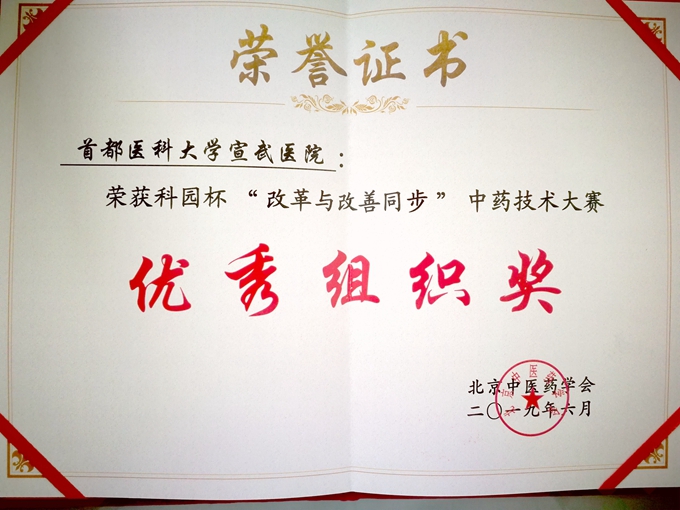 荣誉证书
首都医科大学宣武医院：
荣获科园杯“改革与改善同步”中药技术大赛
优秀组织奖
北京中医药学会
二〇一九年六月